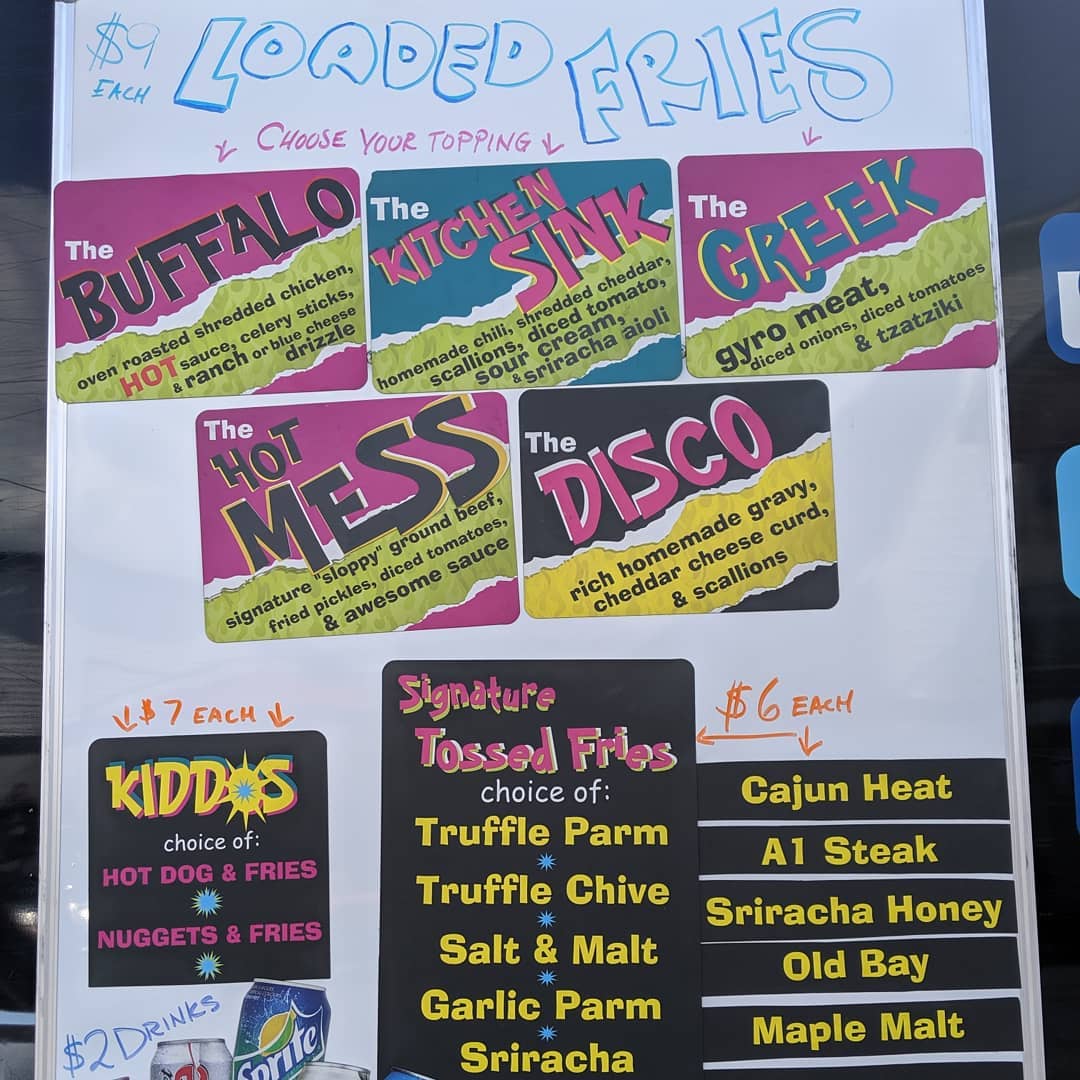 $9
EACH
LOADED FRIES
CHOOSE YOUR TOPPING
The
BUFFALO
oven roasted shredded chicken,
HOT sauce, celery sticks,
& ranch or blue cheese
drizzle
The
KITCHEN
SINK
homemade chili, shredded cheddar,
scallions, diced tomato,
sour cream,
& sriracha aioli
The
GREEK
gyro meat,
diced onions, diced tomatoes
& tzatziki
The
HOT
MESS
signature "sloppy" ground beef,
fried pickles, diced tomatoes,
& awesome sauce
The
DISCO
rich homemade gravy,
cheddar cheese curd,
& scallions
$7 EACH
KIDDOS
choice of:
HOT DOG & FRIES
NUGGETS & FRIES
$2 DRINKS
Sprite
Signature
Tossed Fries
choice of:
Truffle Parm
Truffle Chive
Salt & Malt
Garlic Parm
Sriracha
$6 EACH
Cajun Heat
A1 Steak
Sriracha Honey
Old Bay
Maple Malt